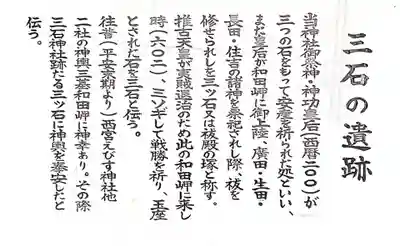 三石の遺跡
当神社御祭神・神功皇后(西暦二〇〇)が
三つの石をもって安産を祈られた処といい、
また皇后が和田岬に御上陸、廣田・生田・
長田・住吉の諸神を祭祀されし際、祓を
修せられしを三ツ石又は祓殿の塚と称す。
推古天皇が夷賊退治のため此の和田岬に来し
時(六〇二)、ミソギして戦勝を祈り、玉座
とされた石を三石と伝う。
往昔(平安末期より)西宮えびす神社他
二社の神輿三基和田岬に神幸あり。その際
三石神社跡たる三ッ石に神輿を奉安したと
伝う。